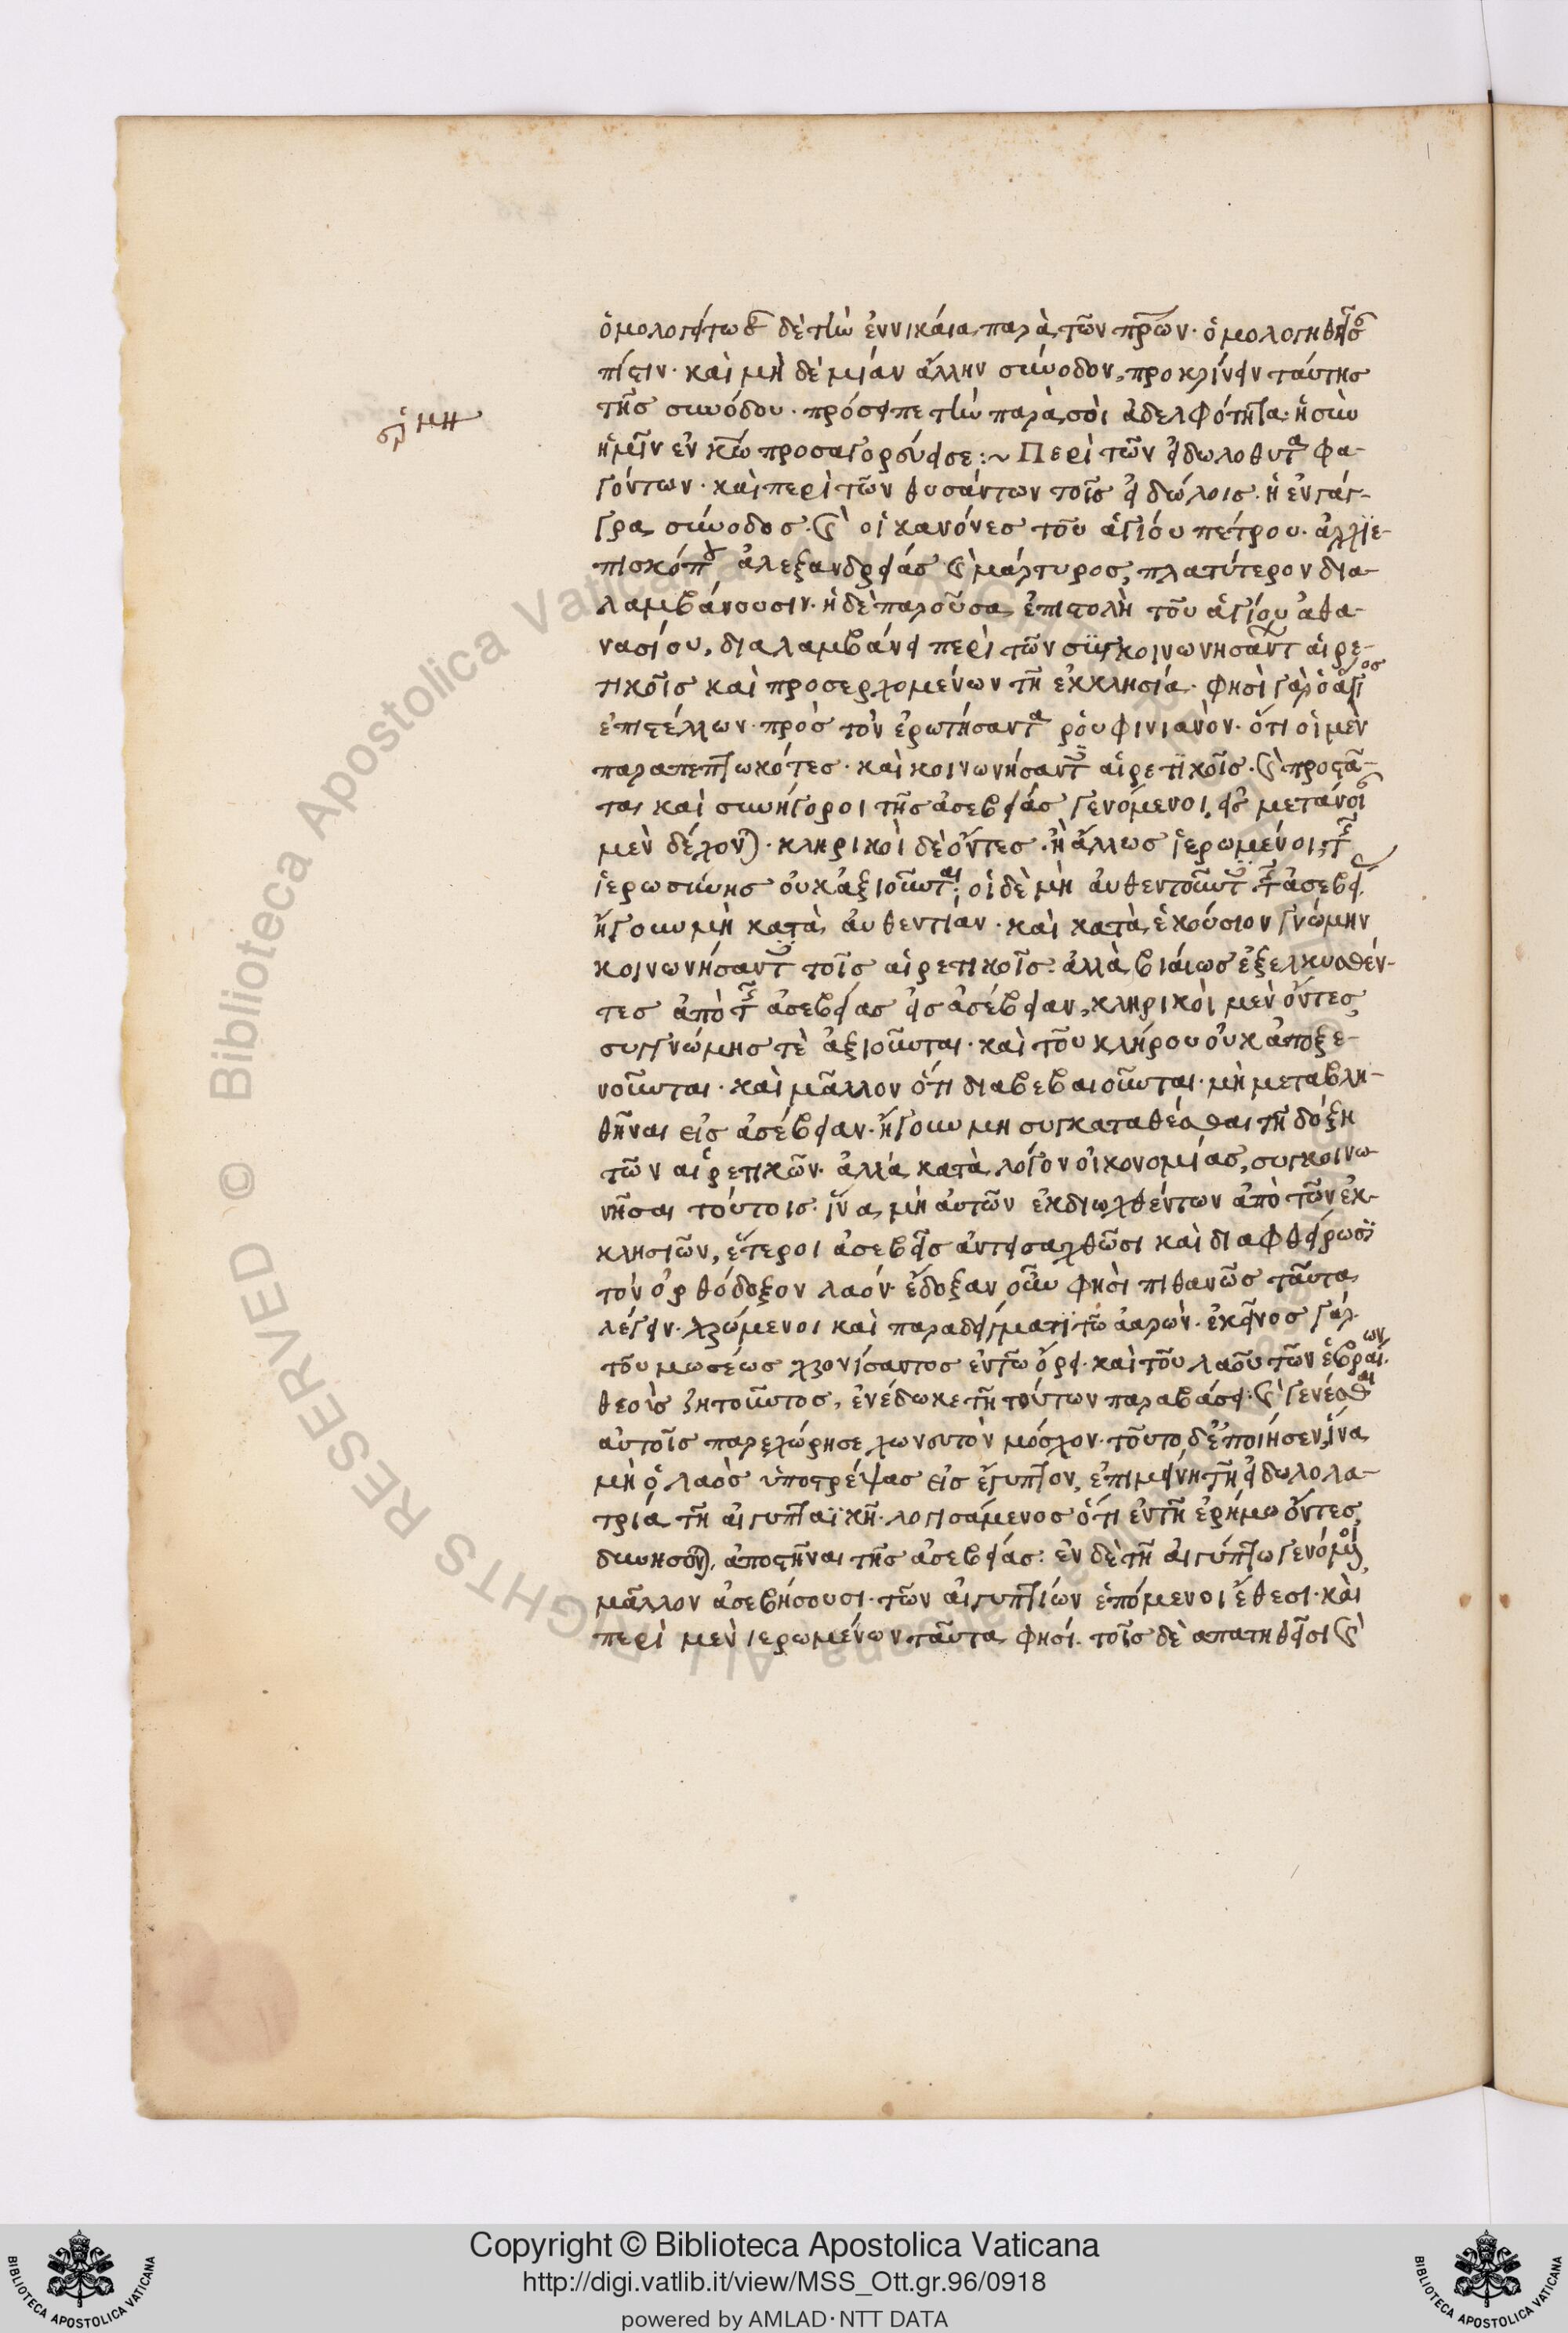 ὁμολογείτωσαν δὲ τὴν ἐν νικαία παρὰ τῶν πρων· ὁμολογηθεῖσαν
πίστιν· καὶ μὴ δὲ μίαν ἄλλην σύνοδον, προκρίνειν ταύτης
τῆς συνόδου· πρόσειπε τὴν παρὰ σοὶ ἀδελφότητα· ἡ σὺν
σχ μη
ἡμῖν ἐν κω προσαγορεύει σε :~ Περὶ τῶν εἰδωλοθυτα φα-
γόντων· καὶ περὶ τῶν θυσάντων τοῖς εἰδώλοις· ἡ ἐν γάγ-
γρα σύνοδος· καὶ οἱ κανόνες τοῦ ἁγίου πέτρου· ἀρχιε-
πισκόπου ἀλεξανδρείας καὶ μάρτυρος, πλατύτερον δια-
λαμβάνουσιν· ἡ δὲ παροῦσα ἐπιστολὴ τοῦ ἁγίου ἀθα-
νασίου, διαλαμβάνει περὶ τῶν συγκοινωνησάντων αἱρε-
τικοῖς καὶ προσερχομένων τῆ ἐκκλησία· φησὶ γὰρ ὁ ἅγιος
ἐπιστέλλων· πρὸς τὸν ἐρωτήσαντα ρουφινιανὸν· ὅτι οἱ μὲν
παραπεπτωκότες· καὶ κοινωνήσαντες αἱρετικοῖς· καὶ προστά-
ται καὶ συνήγοροι τῆς ἀσεβείας γενόμενοι, εἰς μετάνοιαν
μὲν δέχονται· κληρικοὶ δὲ ὄντες· ἢ ἄλλως ἱερωμένοι, τῆς
ἱερωσύνης οὐκ ἀξιοῦνται; οἱ δὲ μὴ αὐθεντοῦντες τῆς ἀσεβείας
ἤγουν μὴ κατὰ αὐθεντίαν· καὶ κατὰ ἑκούσιον γνώμην
κοινωνήσαντες τοῖς αἱρετικοῖς· ἀλλὰ βιαίως ἐξελκυσθέν-
τες ἀπὸ τῆς ἀσεβείας εἰς ἀσέβειαν, κληρικοὶ μὲν ὄντες
συγγνώμης τὲ ἀξιοῦνται· καὶ τοῦ κλήρου οὐκ ἀποξε-
νοῦνται· καὶ μᾶλλον ὅτι διαβεβαιοῦνται· μὴ μεταβλη-
θῆναι εἰς ἀσέβειαν· ἤγουν μη συγκαταθέσθαι τῆ δόξη
τῶν αἱρετικῶν· ἀλλὰ κατὰ λόγον οἰκονομίας, συγκοινω-
νῆσαι τούτοις· ἵνα μὴ αὐτῶν ἐκδιωχθέντων ἀπὸ τῶν ἐκ-
κλησιῶν, ἕτεροι ἀσεβεῖς ἀντεισαχθῶσι καὶ διαφθείρωσι
τὸν ὀρθόδοξον λαόν· ἔδοξαν οὖν φησὶ πιθανῶς ταῦτα
λέγειν· χρώμενοι καὶ παραδείγματι τῶ ἀαρὼν· ἐκεῖνος γὰρ
τοῦ μωσέως χρονίσαντος ἐν τῶ ὄρει· καὶ τοῦ λαοῦ τῶν ἑβραίων
θεοὺς ζητοῦντος, ἐνέδωκε τῆ τούτων παραβάσει· καὶ γενέσθαι
αὐτοῖς παρεχώρησε χωνευτὸν μόσχον· τοῦτο δὲ ἐποίησεν, ἵνα
μὴ ὁ λαὸς ὑποστρέψας εἰς ἔγυπτον, ἐπιμείνη τῆ εἰδωλολα-
τρία τῆ αἰγυπτιακῆ· λογισάμενος ὅτι ἐν τῆ ἐρήμω ὄντες,
δυνήσονται ἀποστῆναι τῆς ἀσεβείας· ἐν δὲ τῆ αἰγύπτω γενόμενοι,
μᾶλλον ἀσεβήσουσι· τῶν αἰγυπτίων ἑπόμενοι ἔθεσι· καὶ
περὶ μὲν ἱερωμένων ταῦτα φησί· τοῖς δὲ απατηθεῖσι καὶ